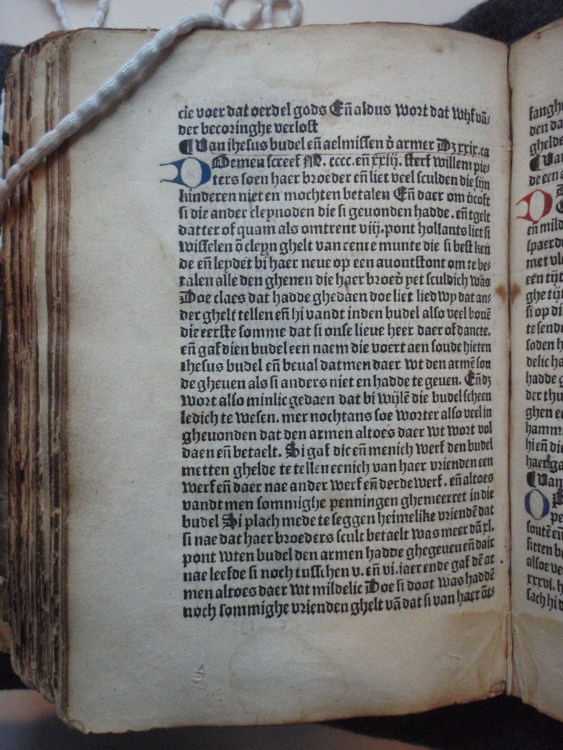 cie voer dat oerdel gods Eñ aldus wort dat wijf vā-
der becoringhe verlost
¶ Van ihesus budel eñ aelmissen ð armer Dz xxix. ca
Doemen screef M. cccc. eñ xxiij. sterf willem pie-
ters soen haer broeder eñ liet veel sculden die sijn
kinderen niet en mochten betalen Eñ daer om ðcoft
si die ander cleynoden die si geuonden hadde. eñ tgelt
datter of quam als omtrent viij. pont hollants liet si
wisselen ō cleyn ghelt van eenre munte die si best
de eñ leydet bi haer neue op een auontstont om te be-
talen alle den ghenen die haer broeð yet sculdich was
Doe claes dat hadde ghedaen doe liet liedwy dat an-
der ghelt tellen eñ hi vandt inden budel also veel bouē
die eerste somme dat si onse lieue heer daer of dancte.
eñ gaf dien budel een naem die voert aen soude hieten
ihesus budel eñ beual datmen daer wt den armē son
de gheuen als si anders niet en hadde te geuen. Eñ dz
wort also minlic gedaen dat bi wijlē die budel scheen
ledich te wesen. mer nochtans soe worter also veel in
gheuonden dat den armen altoes daer wt wort vol
daen eñ betaelt. Si gaf die eñ menich werf den budel
metten ghelde te tellen eenich van haer vrienden een
werf eñ daer nae ander werf eñ derde werf. eñ altoes
vandt men sommighe penningen ghemeerret in die
budel Si plach mede te seggen heimelike vriendē dat
si nae dat haer broeders scult betaelt was meer dā xl.
pont wten budel den armen hadde ghegeuen eñ daer
nae leefde si noch tusschen v. eñ vi. iaer ende gaf dē ar
men altoes daer wt mildelic Doe si doot was haddē
noch sommighe vrienden ghelt vā dat si van haer